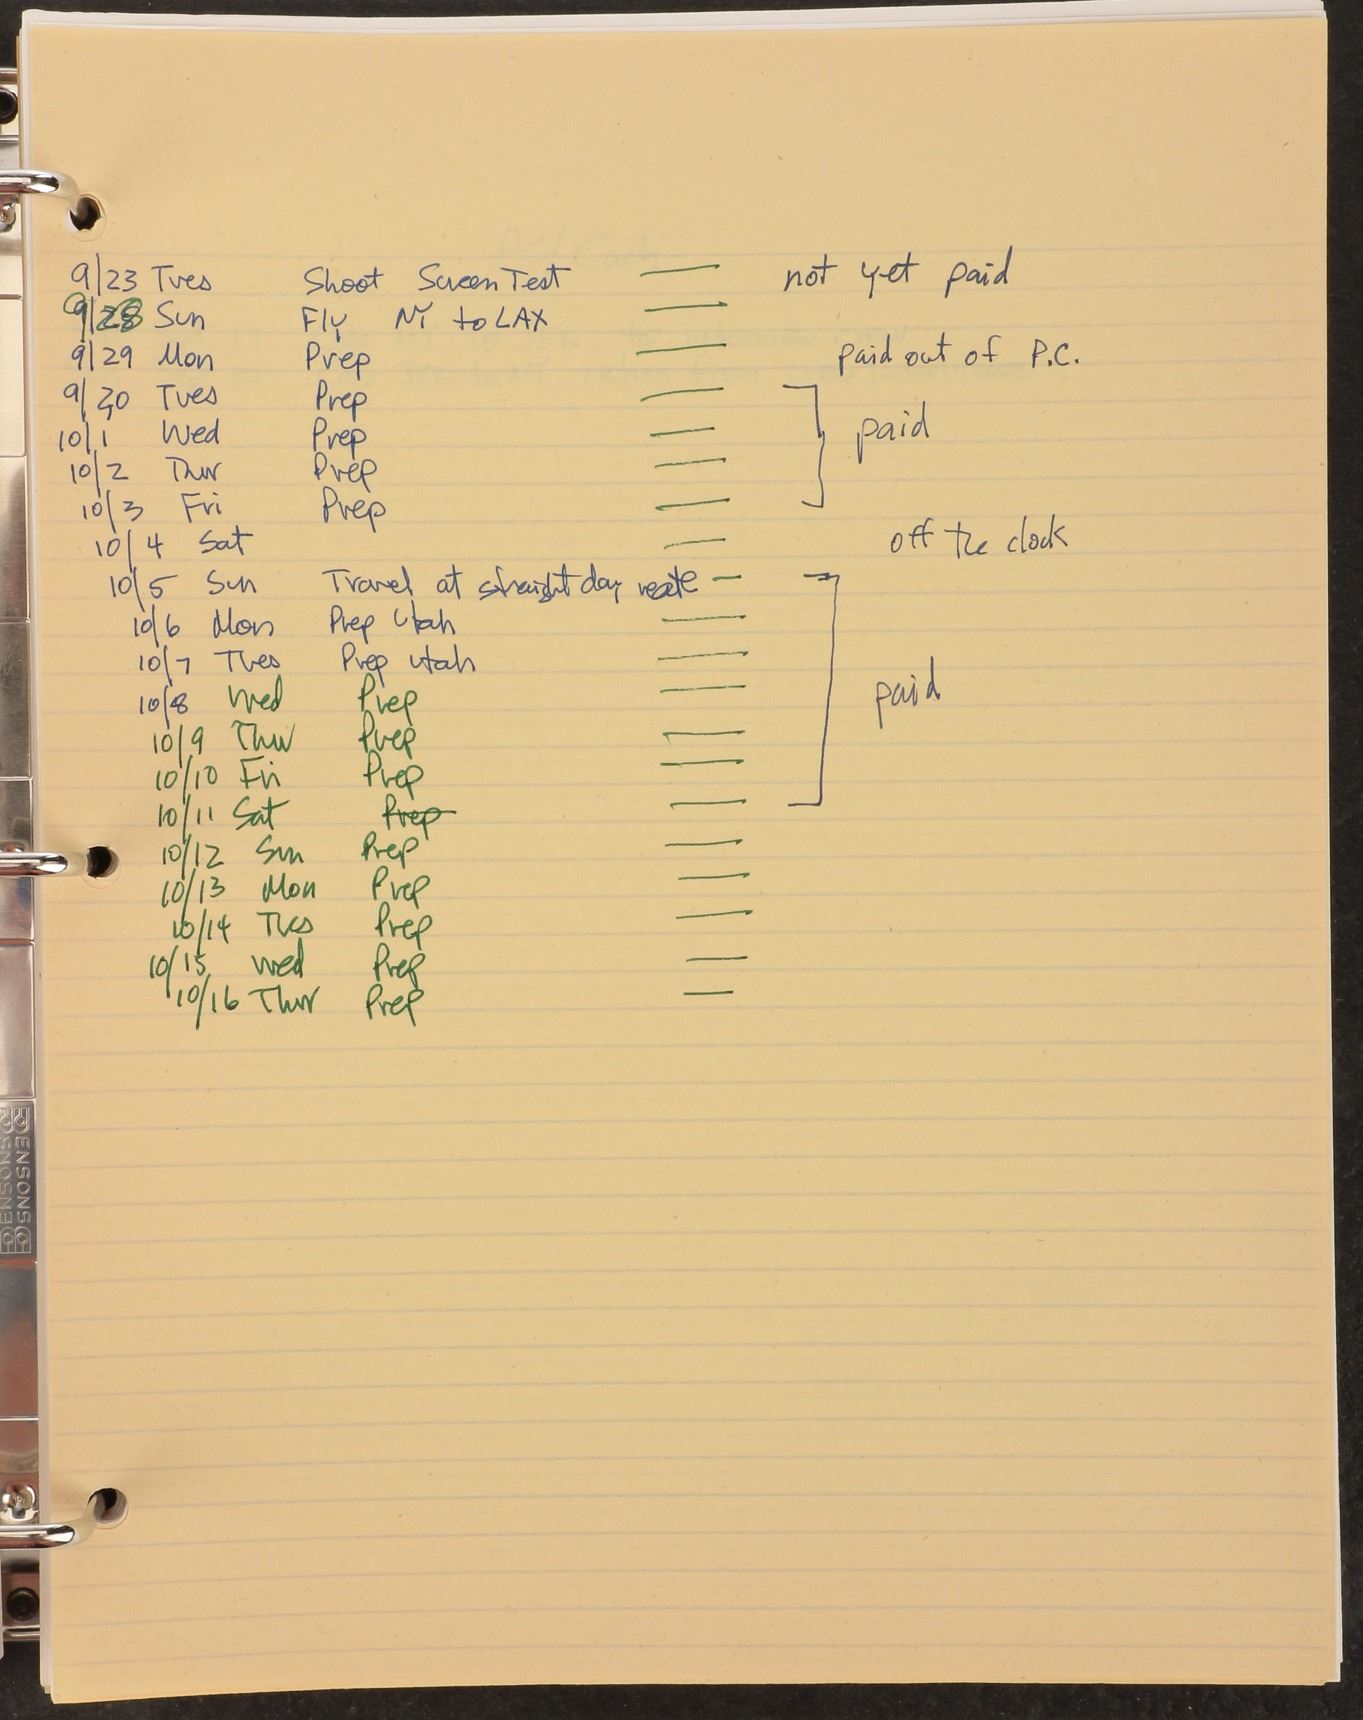 9/23 Tues Shoot Screen Test — not yet paid
9/28 Sun Fly NY to LAX —
9/29 Mon Prep — paid out of P.C.
9/30 Tues Prep —
10/1 Wed Prep — paid
10/2 Thur Prep —
10/3 Fri Prep —
10/4 Sat — off the clock
10/5 Sun Travel at straight day rate —
10/6 Mon Prep Utah —
10/7 Tues Prep Utah —
10/8 Wed Prep — paid
10/9 Thur Prep —
10/10 Fri Prep —
10/11 Sat Prep —
10/12 Sun Prep —
10/13 Mon Prep —
10/14 Tues Prep —
10/15 Wed Prep —
10/16 Thur Prep —
BENSONS
BENSONS